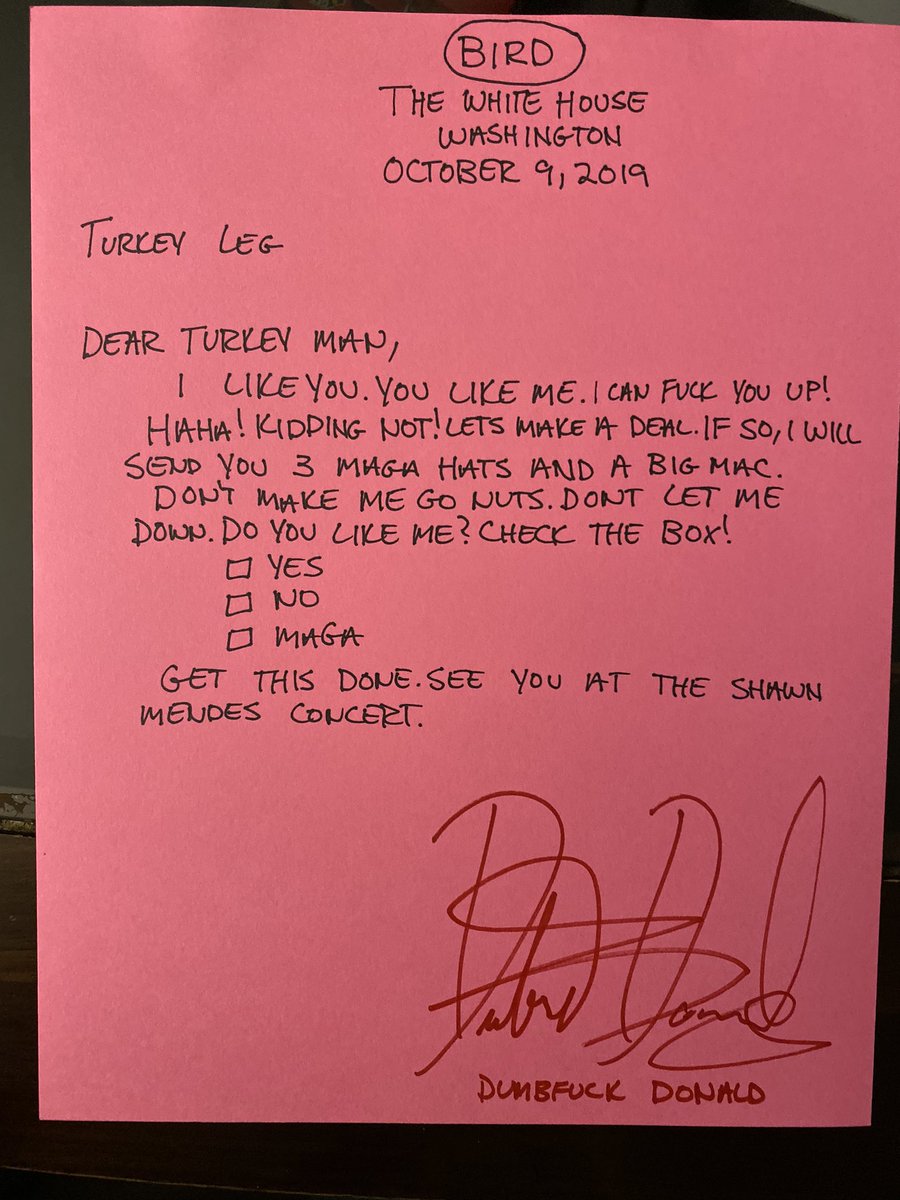 BIRD
THE WHITE HOUSE
WASHINGTON
OCTOBER 9, 2019
TURKEY LEG
DEAR TURKEY MAN,
I LIKE YOU. YOU LIKE ME. I CAN FUCK YOU UP!
HAHA! KIDDING NOT! LETS MAKE A DEAL. IF SO, I WILL
SEND YOU 3 MAGA HATS AND A BIG MAC.
DON'T MAKE ME GO NUTS. DONT LET ME
DOWN. DO YOU LIKE ME? CHECK THE BOX!
YES
NO
MAGA
GET THIS DONE. SEE YOU AT THE SHAWN
MENDES CONCERT.
DUMBFUCK DONALD